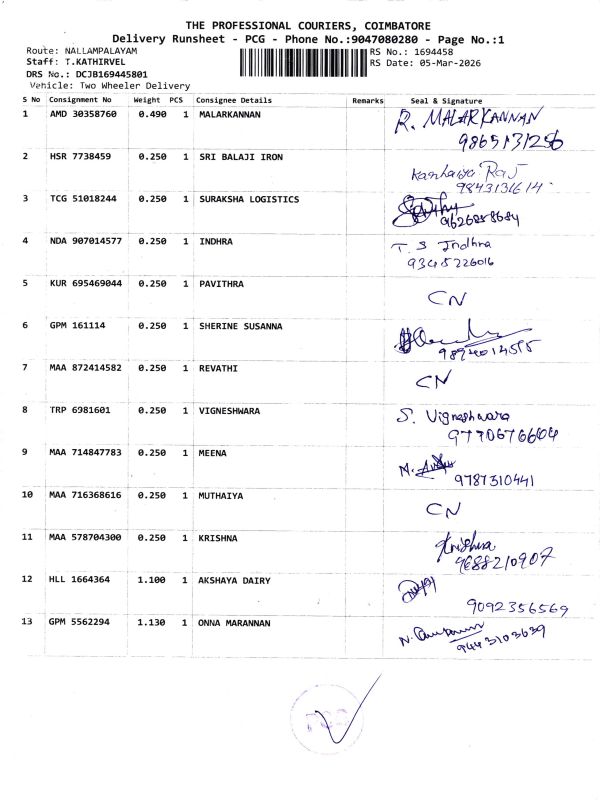 THE PROFESSIONAL COURIERS, COIMBATORE
Delivery Runsheet - PCG - Phone No.:9047080280 - Page No.:1
Route: NALLAMPALAYAM RS No.: 1694458
Staff: T.KATHIRVEL RS Date: 05-Mar-2026
DRS No.: DCJB169445801
Vehicle: Two Wheeler Delivery
S No Consignment No Weight PCS Consignee Details Remarks Seal & Signature
1 AMD 30358760 0.490 1 MALARKANNAN R. MALARKANNAN
9865131256
2 HSR 7738459 0.250 1 SRI BALAJI IRON Kanhaiya Raj
9843131614
3 TCG 51018244 0.250 1 SURAKSHA LOGISTICS
9626888684
4 NDA 907014577 0.250 1 INDHRA T. S Indhra
9345226016
5 KUR 695469044 0.250 1 PAVITHRA CN
6 GPM 161114 0.250 1 SHERINE SUSANNA
7 MAA 872414582 0.250 1 REVATHI CN
8 TRP 6981601 0.250 1 VIGNESHWARA S. Vigneshwara
9770676604
9 MAA 714847783 0.250 1 MEENA
9787310441
10 MAA 716368616 0.250 1 MUTHAIYA CN
11 MAA 578704300 0.250 1 KRISHNA Krishna
9688210907
12 HLL 1664364 1.100 1 AKSHAYA DAIRY
9092356569
13 GPM 5562294 1.130 1 ONNA MARANNAN
9443103639
PCG